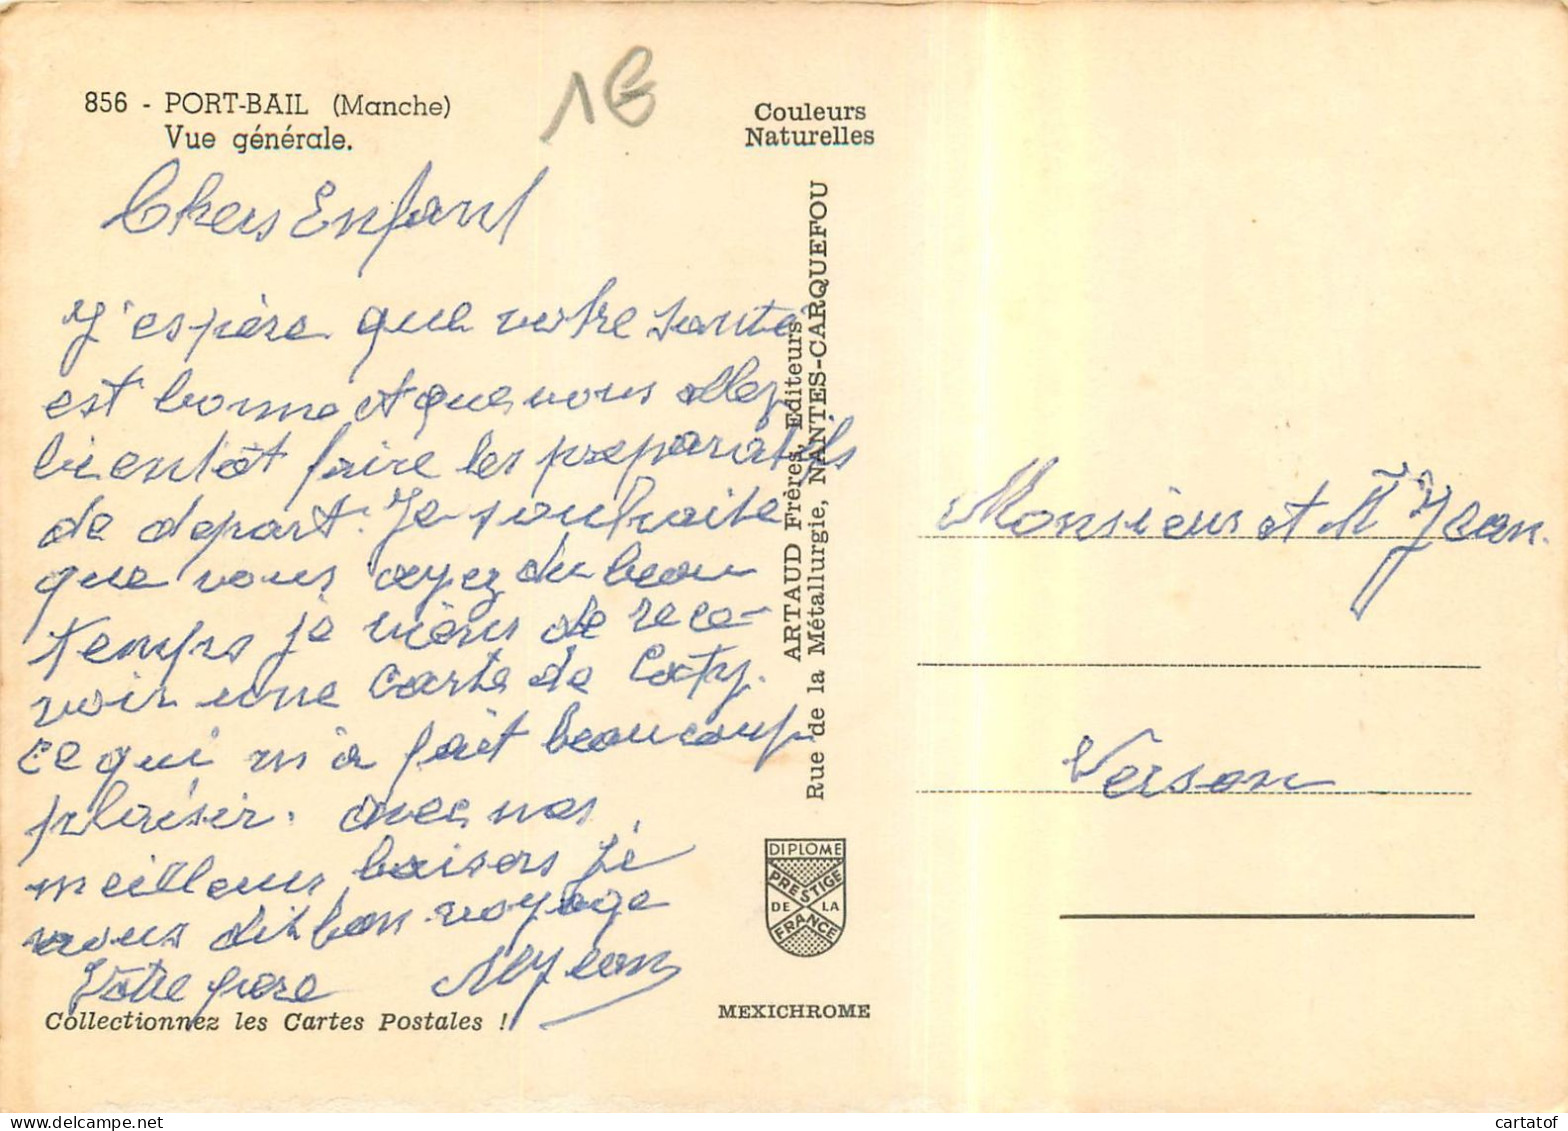 856 - PORT-BAIL (Manche)
Vue générale.
1€
Couleurs
Naturelles
Chers Enfant
J'espère que votre santé
est bonne et que vous allez
bientôt faire les preparatifs
de depart. Je souhaite
que vous ayez du beau
temps je viens de rece-
voir une carte de Coty.
ce qui m'a fait beaucoup
plaisir. avec nos
meilleurs baisers je
vous dit bon voyage
Votre père
Collectionnez les Cartes Postales !
ARTAUD Frères, Editeurs
Rue de la Métallurgie, NANTES-CARQUEFOU
DIPLOME
PRESTIGE
DE LA
FRANCE
MEXICHROME
Monsieur et M Jean.
Verson
cartatof